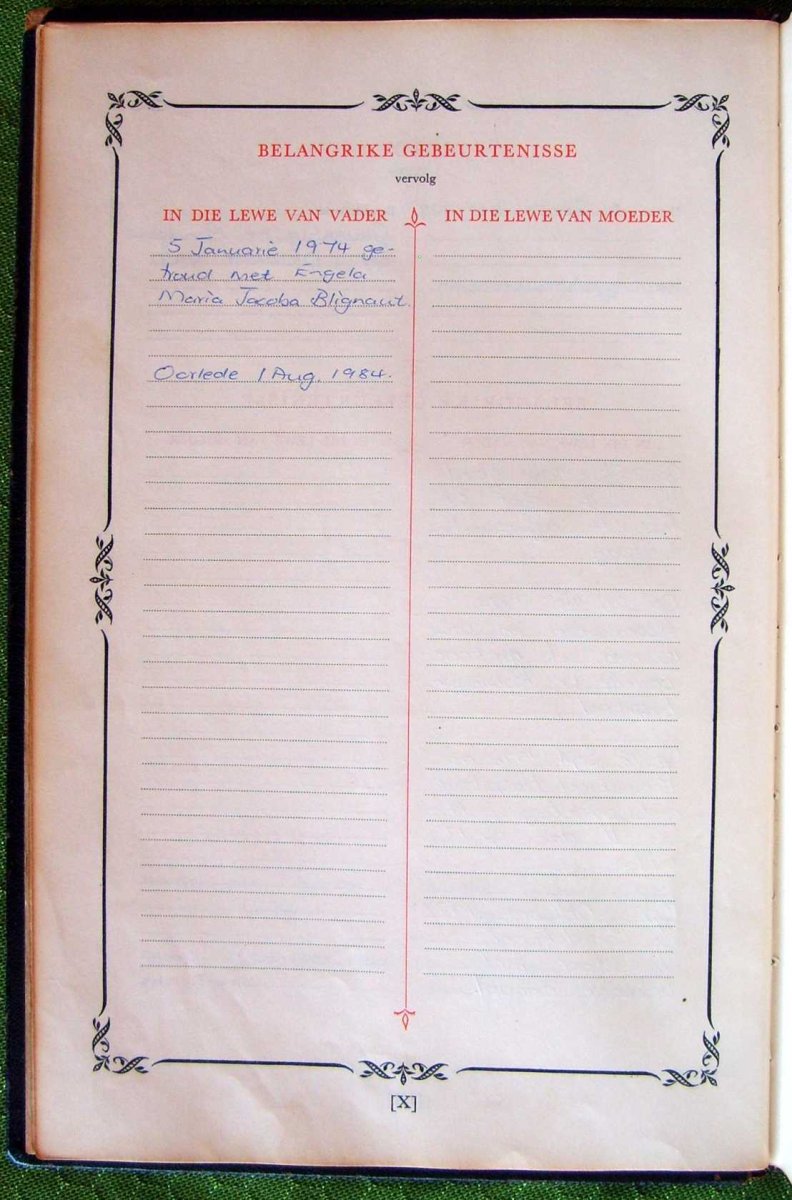 BELANGRIKE GEBEURTENISSE
vervolg
IN DIE LEWE VAN VADER
5 Januarie 1974 ge-
troud met Engela
Maria Jacoba Blignaut.
Oorlede 1 Aug. 1984.
IN DIE LEWE VAN MOEDER
[X]